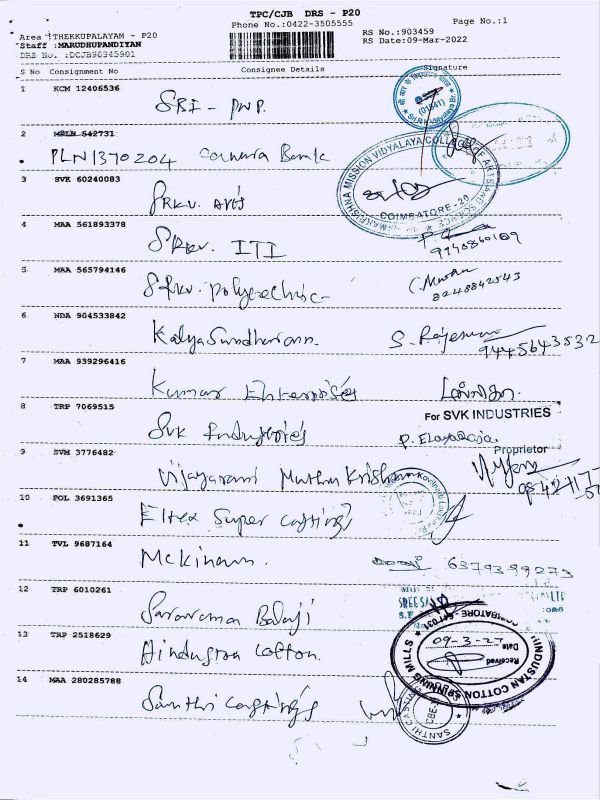 TPC/CJB DRS - P20
Phone No.:0422-3505555
Page No.:1
Area :THEKKUPALAYAM - P20
Staff :MARUDHUPANDIYAN
DRS No. :DCJB90345901
RS No.:903459
RS Date:09-Mar-2022
S No Consignment No Consignee Details Signature
1 KCM 12406536
SRI - PWP.
2 MSLR 542731
PLN1370204
3 SVK 60240083
SRKV. Arts
RAMAKRISHNA MISSION VIDYALAYA COLLEGE OF ARTS AND SCIENCE
COIMBATORE-20
4 MAA 561893378
SRKV. ITI
5 MAA 565794146
SRKV. Polytechnic
8248842543
6 NDA 904533842
Kalyasundharam.
9445643532
7 MAA 939296416
Kumar Enterprises
8 TRP 7069515
SVK Industries
For SVK INDUSTRIES
P. Elayaraja
Proprietor
9 SVM 3776482
Vijayarani Muthu Krishnan
10 POL 3691365
Eltex Super Castings
11 TVL 9687164
Mckinam.
6379399273
12 TRP 6010261
Saravana Balaji
13 TRP 2518629
Hindustan Cotton.
HINDUSTAN COTTON SPINNING MILLS
COIMBATORE - 641 031
Date
Received
14 MAA 280285788
Santhi Castings
SANTHI CASTINGS